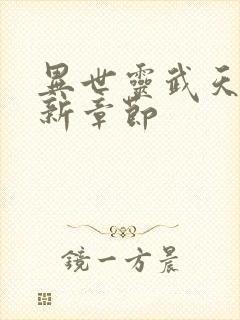 異世靈武天
新章節
鏡一方晨